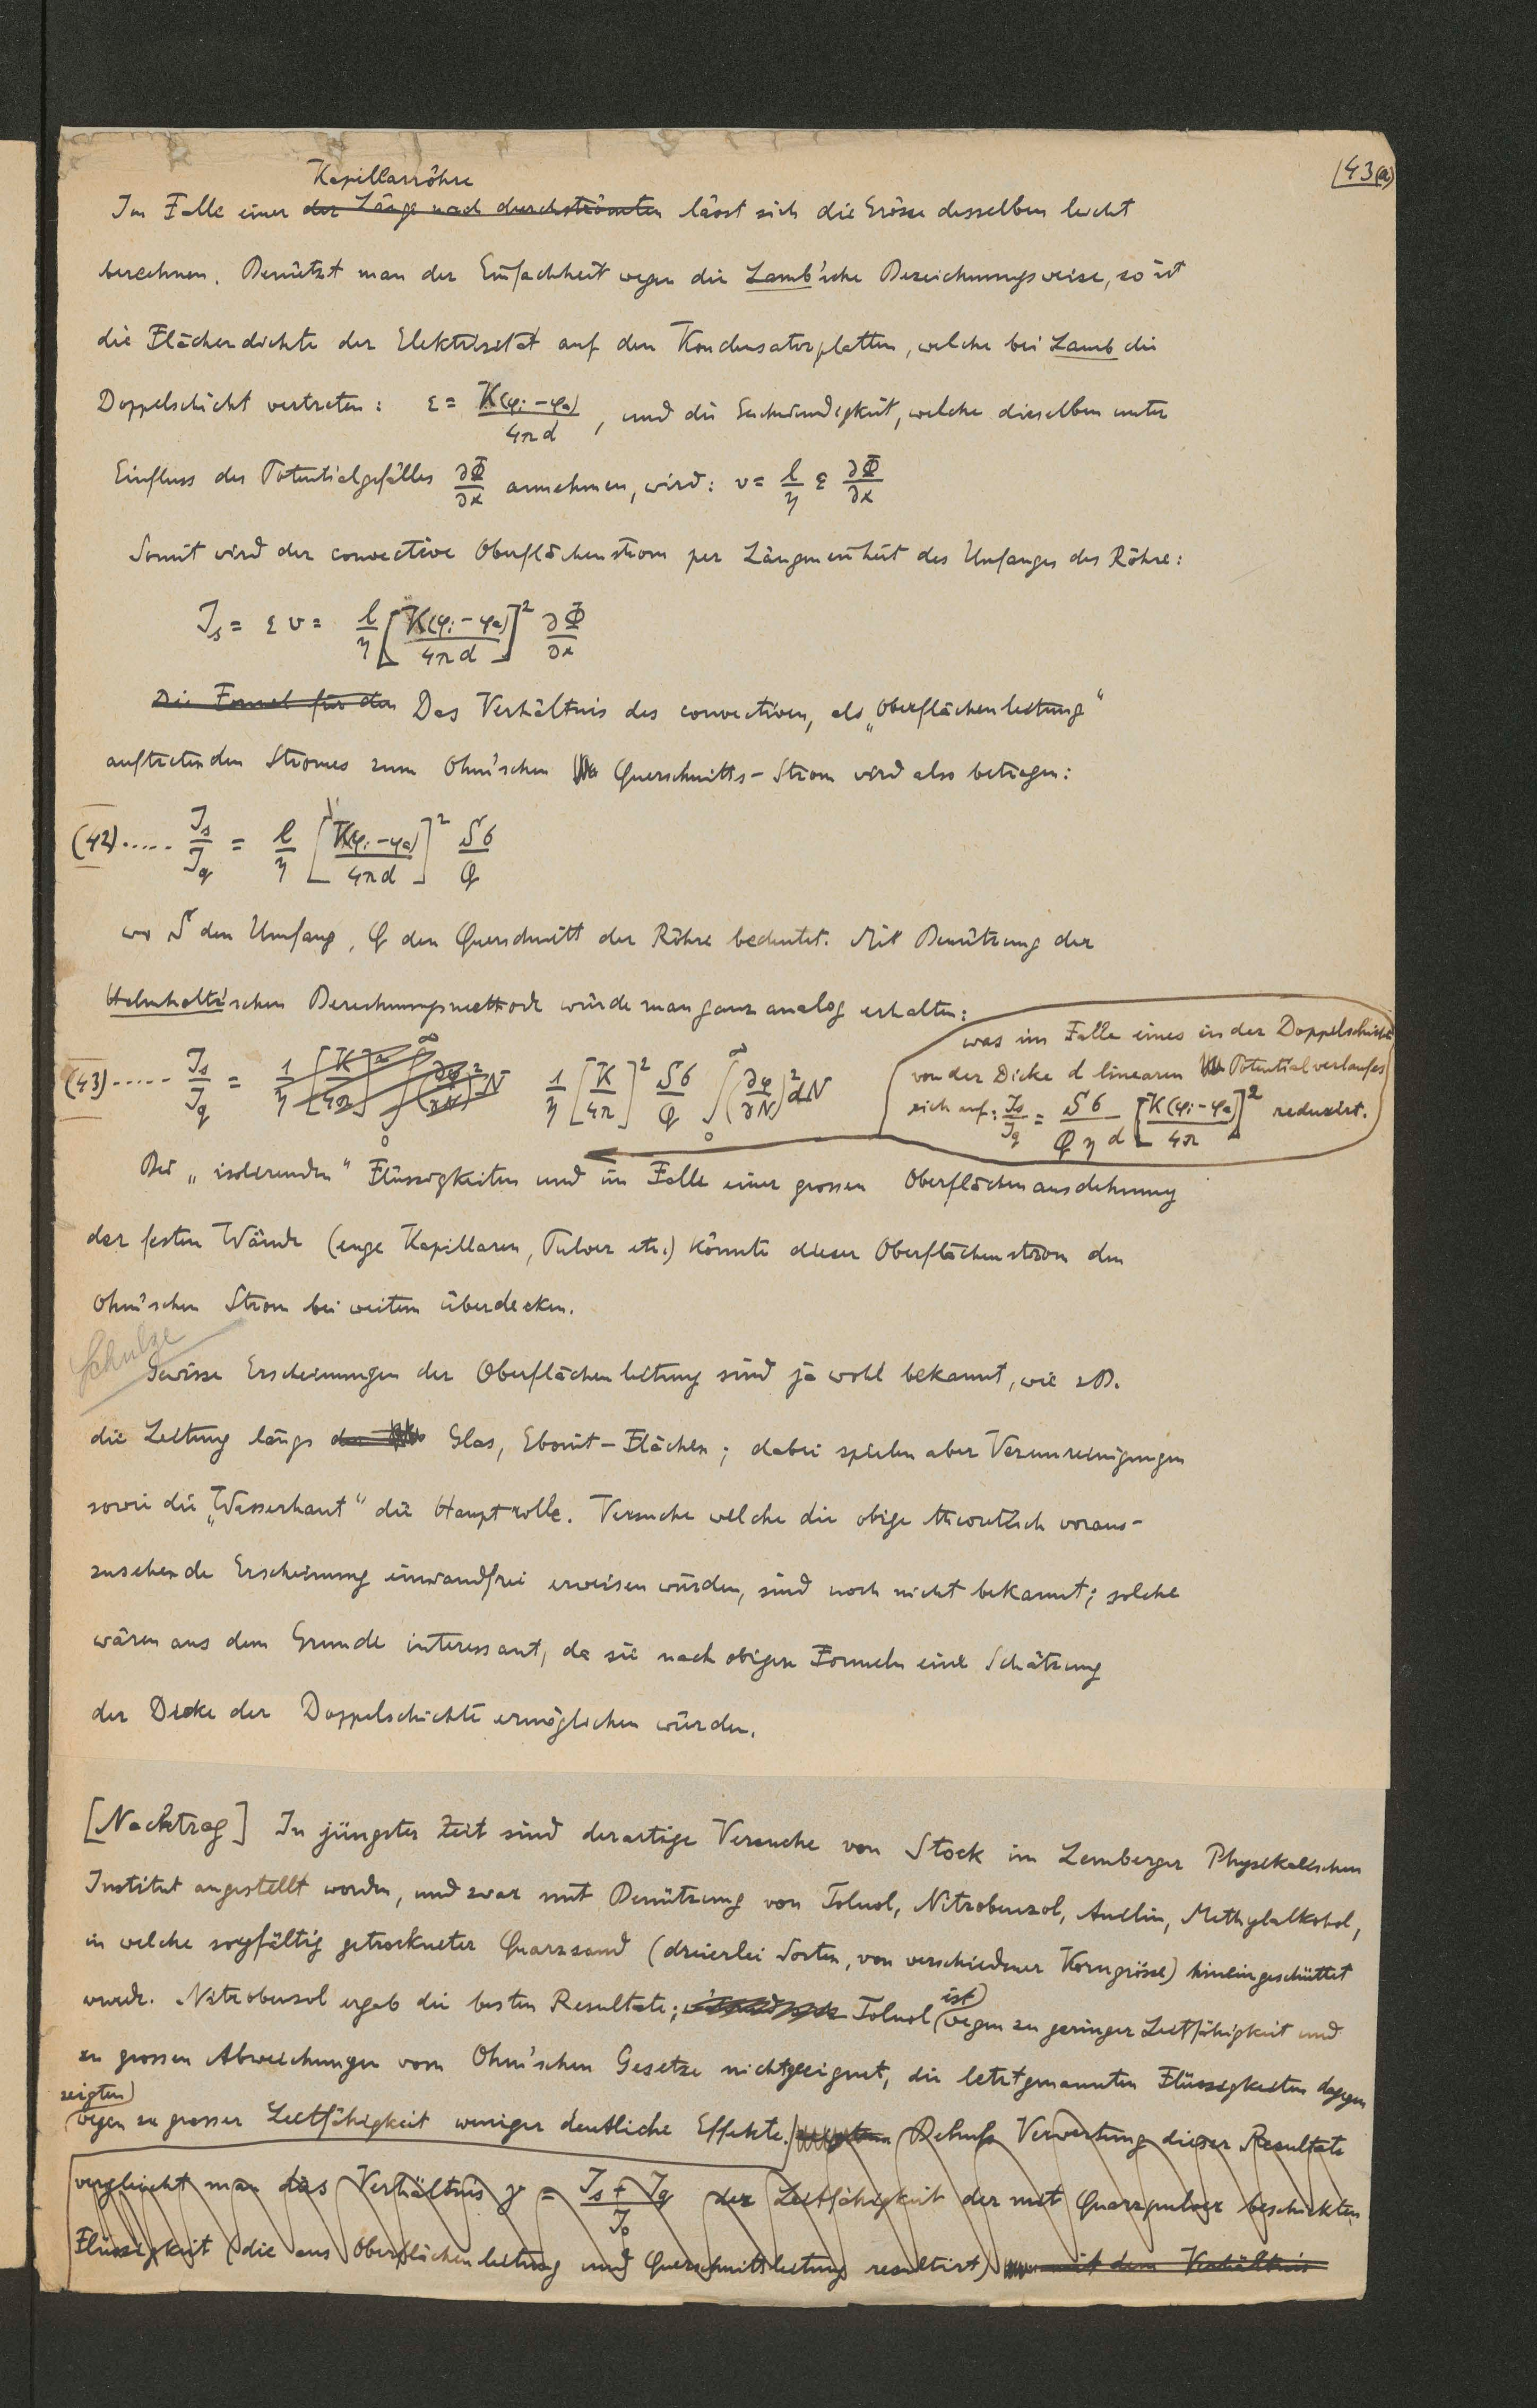 43(a)
Kapillarröhre
Im Falle einer der Länge nach durchströmten lässt sich die Grösse desselben leicht
berechnen. Benützt man der Einfachheit wegen die Lamb'sche Bezeichnungsweise, so ist
die Flächendichte der Elektrizität auf den Kondensatorplatten, welche bei Lamb die
Doppelschicht vertreten: ε = K(φi − φa) / 4πd , und die Geschwindigkeit, welche dieselben unter
Einfluss des Potentialgefälles ∂Φ/∂x annehmen, wird: v = l/η ε ∂Φ/∂x
Somit wird der convective Oberflächenstrom per Längeneinheit des Umfanges der Röhre:
Js = εv = l/η [K(φi − φa) / 4πd]² ∂Φ/∂x
Die Formel für den Das Verhältnis des convectiven, als „Oberflächenleitung“
auftretenden Stromes zum Ohm'schen Querschnitts-Strom wird also betragen:
(42)..... Js/Jq = l/η [K(φi − φa) / 4πd]² Sσ/Q
wo S den Umfang, Q den Querschnitt der Röhre bedeutet. Mit Benützung der
Helmholtz'schen Berechnungsmethode würde man ganz analog erhalten:
(43)..... Js/Jq = 1/η [K/4π]² ∫₀^∞ (∂φ/∂N)² N 1/η [K/4π]² Sσ/Q ∫₀^∞ (∂φ/∂N)² dN
was im Falle eines in der Doppelschicht
von der Dicke d linearen Potentialverlaufes
sich auf: Js/Jq = Sσ / Qηd [K(φi − φa) / 4π]² reduziert.
Bei „isolierenden“ Flüssigkeiten und im Falle einer grossen Oberflächenausdehnung
der festen Wände (enge Kapillaren, Pulver etc.) könnte dieser Oberflächenstrom den
Ohm'schen Strom bei weitem überdecken.
Schulze
Gewisse Erscheinungen der Oberflächenleitung sind ja wohl bekannt, wie z.B.
die Leitung längs der Glas, Ebonit-Flächen; dabei spielen aber Verunreinigungen
sowie die „Wasserhaut“ die Hauptrolle. Versuche welche die obige theoretisch voraus-
zusehende Erscheinung einwandfrei erweisen würden, sind noch nicht bekannt; solche
wären aus dem Grunde interessant, da sie nach obigen Formeln eine Schätzung
der Dicke der Doppelschichte ermöglichen würden.
[Nachtrag] In jüngster Zeit sind derartige Versuche von Stock im Lemberger Physikalischen
Institut angestellt worden, und zwar mit Benützung von Toluol, Nitrobenzol, Anilin, Methylalkohol,
in welche sorgfältig getrockneter Quarzsand (dreierlei Sorten, von verschiedener Korngrösse) hineingeschüttet
wurde. Nitrobenzol ergab die besten Resultate; Toluol ist wegen zu geringer Leitfähigkeit und
zu grossen Abweichungen vom Ohm'schen Gesetze nicht geeignet, die letztgenannten Flüssigkeiten dagegen
zeigten wegen zu grosser Leitfähigkeit weniger deutliche Effekte. Behufs Verwertung dieser Resultate
vergleicht man das Verhältnis γ = Js + Jq / J₀ der Leitfähigkeit der mit Quarzpulver beschickten
Flüssigkeit (die aus Oberflächenleitung und Querschnittsleitung resultirt) mit dem Verhältnis